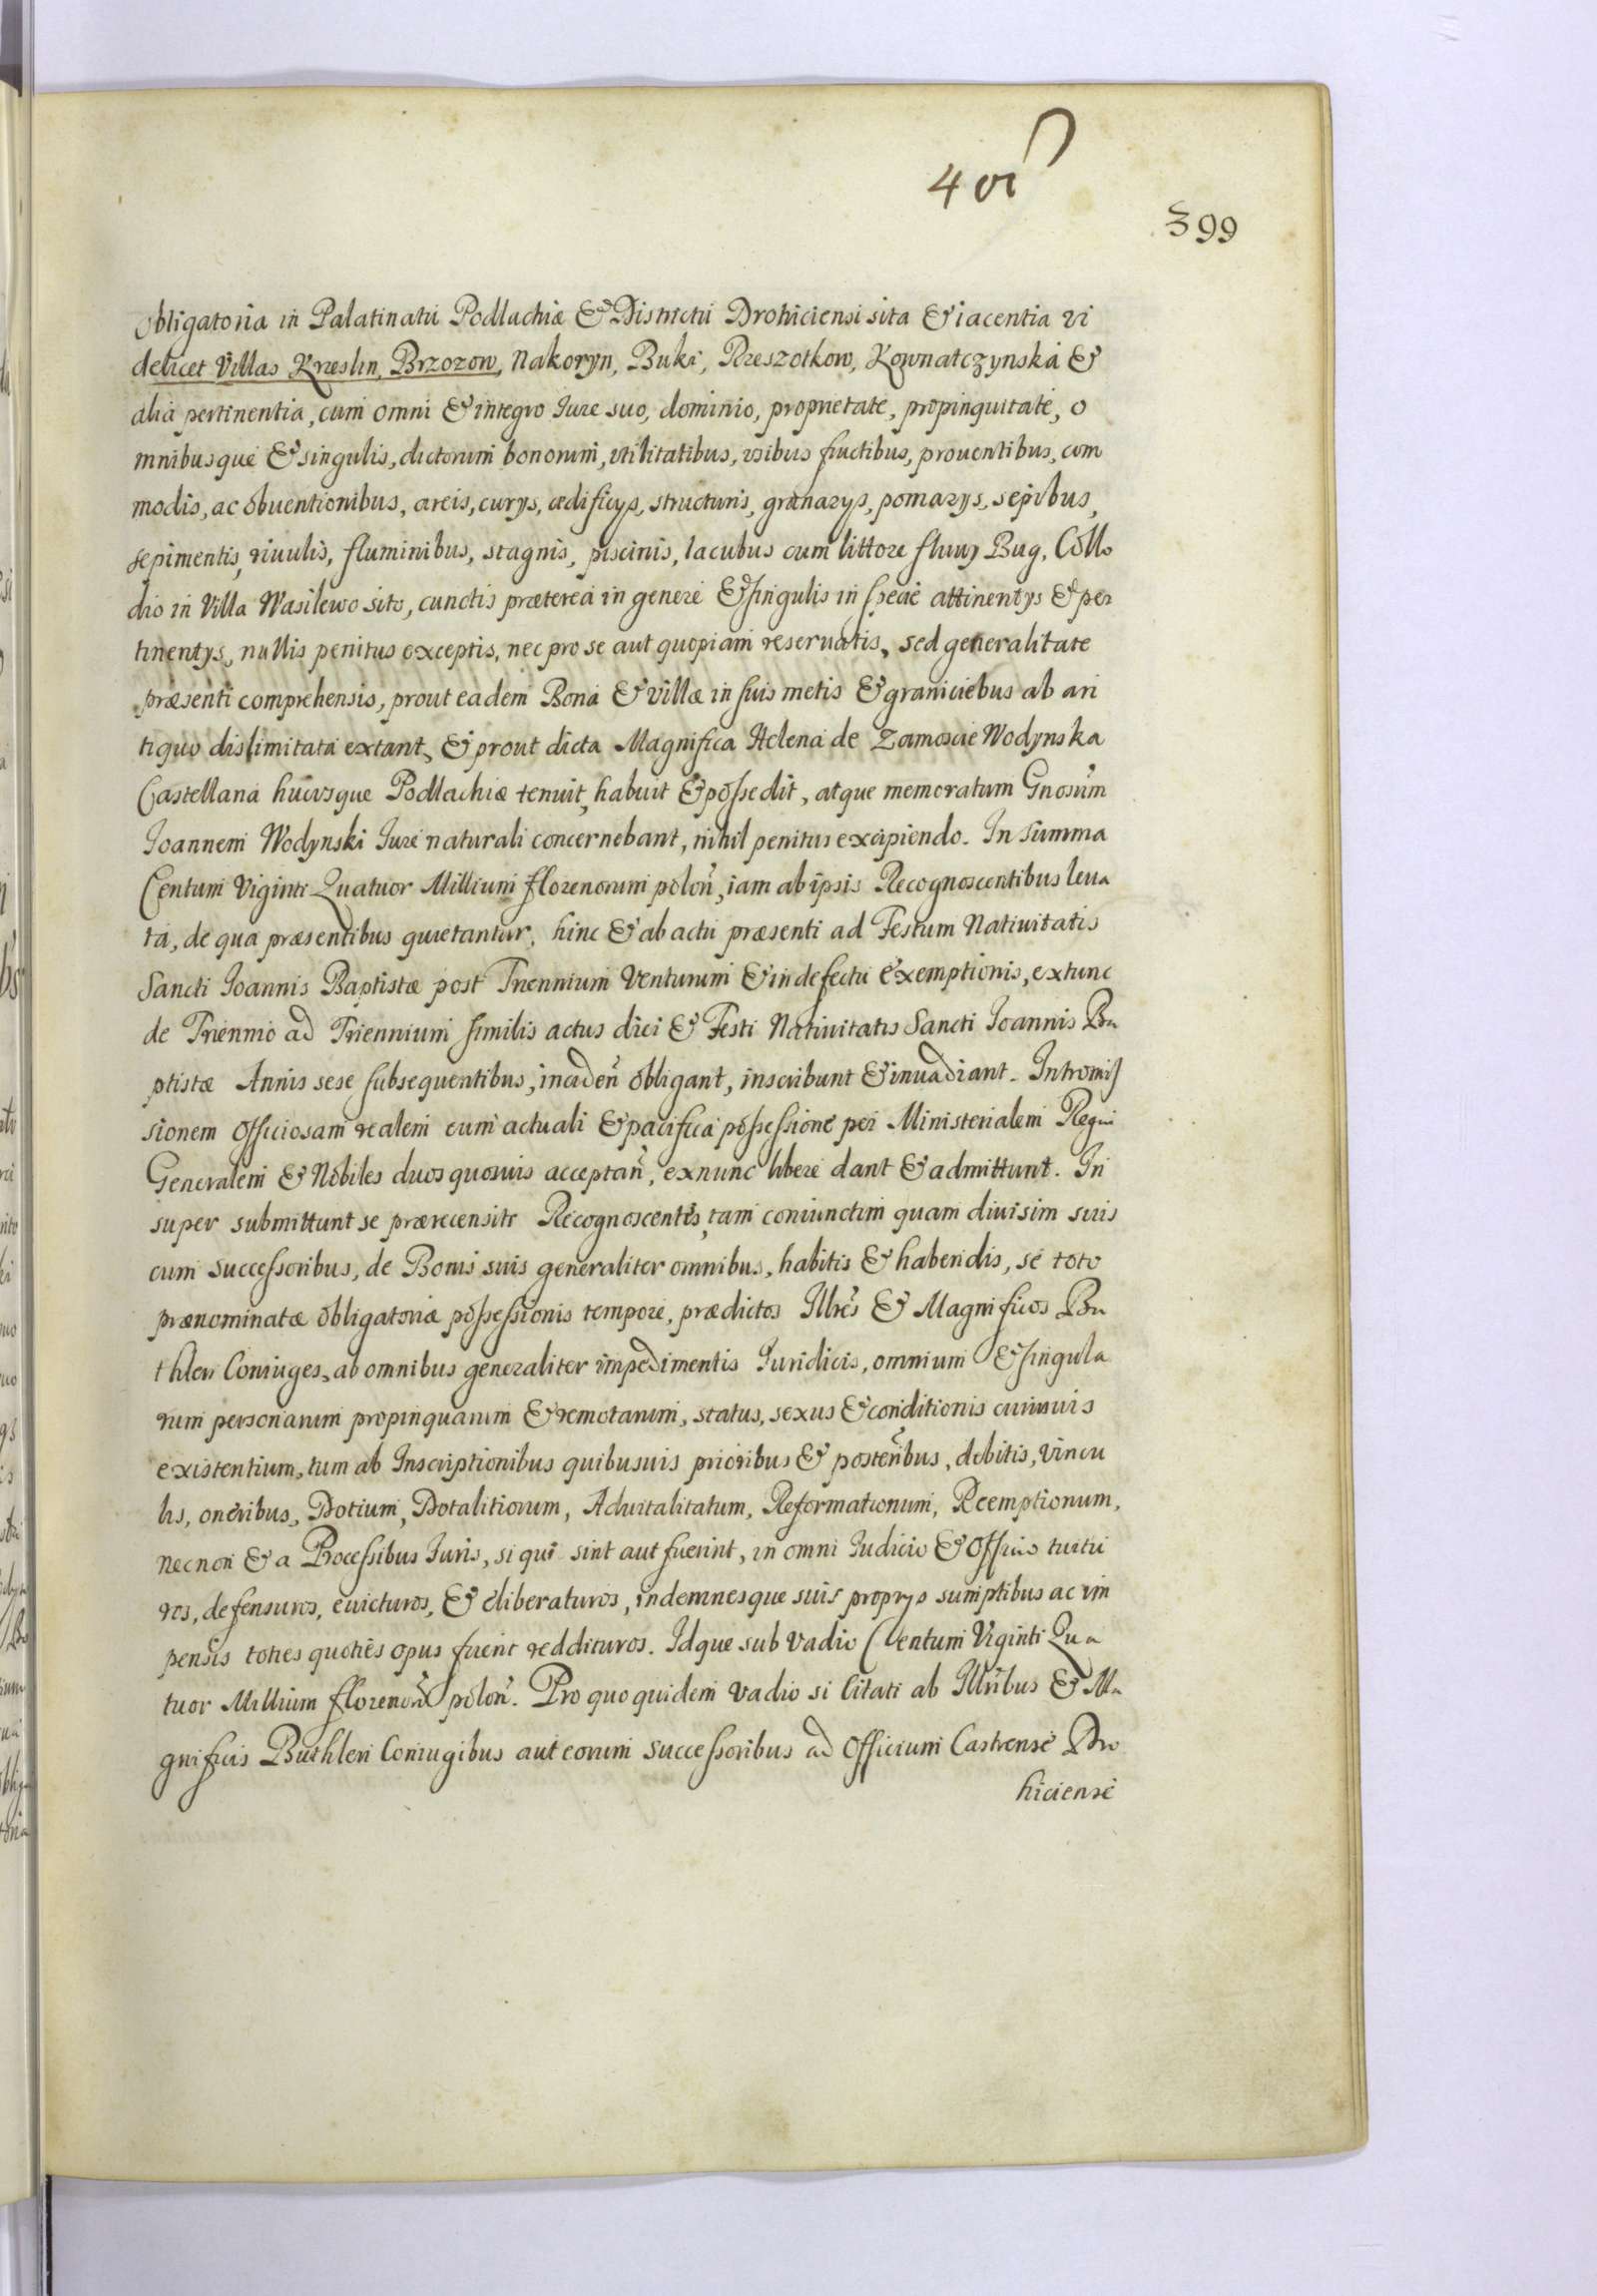 401
399
obligatoria in Palatinatu Podlachiæ & Districtu Drohiciensi sita & iacentia vi
delicet Villas Krzeslin, Brzozow, Nakoryn, Buki, Rzeszotkow, Kownatczynska &
alia pertinentia, cum omni & integro Iure suo, dominio, proprietate, propinquitate, o
mnibusque & singulis, dictorum bonorum, vtilitatibus, vsibus fructibus, prouentibus, com
modis, ac obuentionibus, areis, curys, ædificys, structuris, granarys, pomarys, sepibus,
sepimentis, riuulis, fluminibus, stagnis, piscinis, lacubus cum littore fluuy Bug, Collo
dio in Villa Wasilewo sito, cunctis præterea in genere & singulis in specie attinentys & per
tinentys, nullis penitus exceptis, nec pro se aut quopiam reseruatis, sed generalitate
præsenti comprehensis, prout eadem Bona & villæ in suis metis & graniciebus ab an
tiquo dislimitata extant, & prout dicta Magnifica Helena de Zamoscie Wodynska
Castellana hucusque Podlachiæ tenuit, habuit & possedit, atque memoratum Gnosum
Ioannem Wodynski Iure naturali concernebant, nihil penitus excipiendo. In Summa
Centum Viginti Quatuor Millium florenorum polon, iam ab ipsis Recognoscentibus leua
ta, de qua præsentibus quietantur, hinc & ab actu præsenti ad Festum Natiuitatis
Sancti Ioannis Baptistæ post Triennium Venturum & in defectu exemptionis, extunc
de Triennio ad Triennium similis actus diei & Festi Natiuitatis Sancti Ioannis Ba
ptistæ Annis sese subsequentibus, inaden obligant, inscribunt & inuadiant. Intromis
sionem officiosam realem cum actuali & pacifica possessione per Ministerialem Regni
Generalem & Nobiles duos quosuis acceptan, exnunc libere dant & admittunt. In
super submittunt se præecensiti Recognoscentes, tam coniunctim quam diuisim suis
cum successoribus, de Bonis suis generaliter omnibus, habitis & habendis, se toto
prænominatæ obligatoriæ possessionis tempore, prædictos Illres & Magnificos Bu
thlen Coniuges, ab omnibus generaliter impedimentis Iuridicis, omnium & singula
rum personarum propinquarum & remotarum, status, sexus & conditionis cuiusuis
existentium, tum ab Inscriptionibus quibusuis prioribus & posteribus, debitis, vincu
lis, oneribus, Dotium, Dotalitiorum, Aduitalitatum, Reformationum, Reemptionum,
necnon & a Processibus Iuris, si qui sint aut fuerint, in omni Iudicio & Officio tuitu
ros, defensuros, euicturos, & eliberaturos, indemnesque suis proprys sumptibus ac im
pensis toties quoties opus fuerit reddituros. Idque sub vadio Centum Viginti Qua
tuor Millium florenor polon. Pro quo quidem vadio si citati ab Illribus & Ma
gnificis Buthlen Coniugibus aut eorum successoribus ad Officium Castrense Dro
hiciense